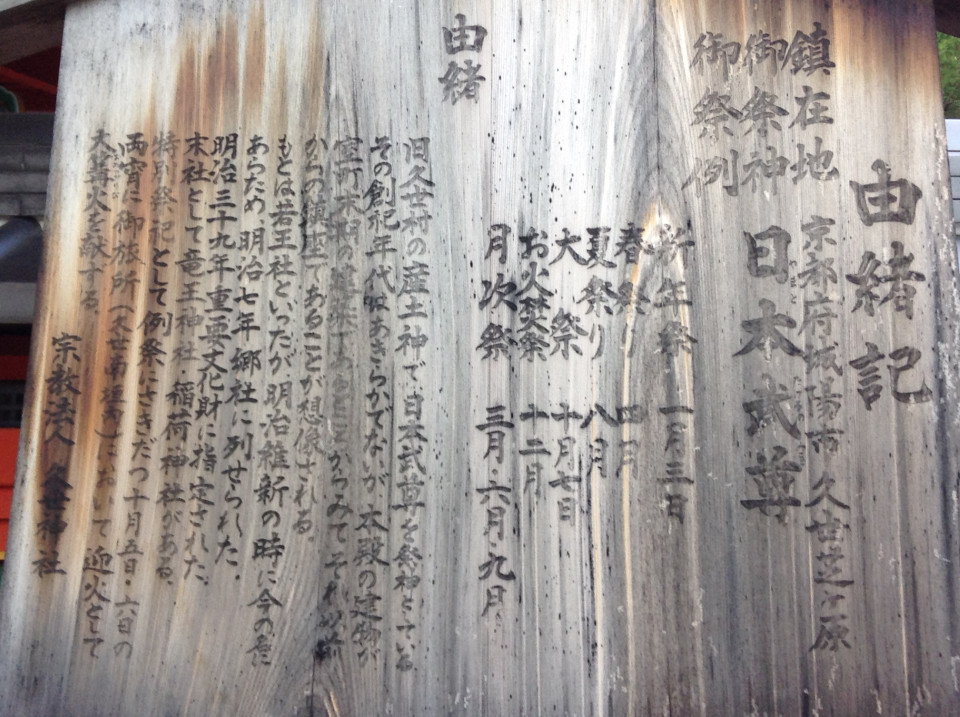 由緒記
鎮在地 京都府城陽市久世芝ヶ原
御祭神 日本武尊
御祭例 祈年祭 一月三日
春祭り 四月
夏祭り 八月
大祭 十月七日
お火焚祭 十二月
月次祭 三月・六月・九月
由緒
旧久世村の産土神で日本武尊を祭神としている。
その創祀年代はあきらかでないが、本殿の建物が
室町末期の建築であることからみて、それ以前
からの鎮座であることが想像される。
もとは若王社といったが明治維新の時に今の名に
あらため、明治七年郷社に列せられた。
明治三十九年重要文化財に指定された。
末社として竜王神社・稲荷神社がある。
特別祭祀として例祭にさきだつ十月五日・六日の
両宵に御旅所（久世南垣内）において迎火として
大篝火を献ずる。
宗教法人 久世神社